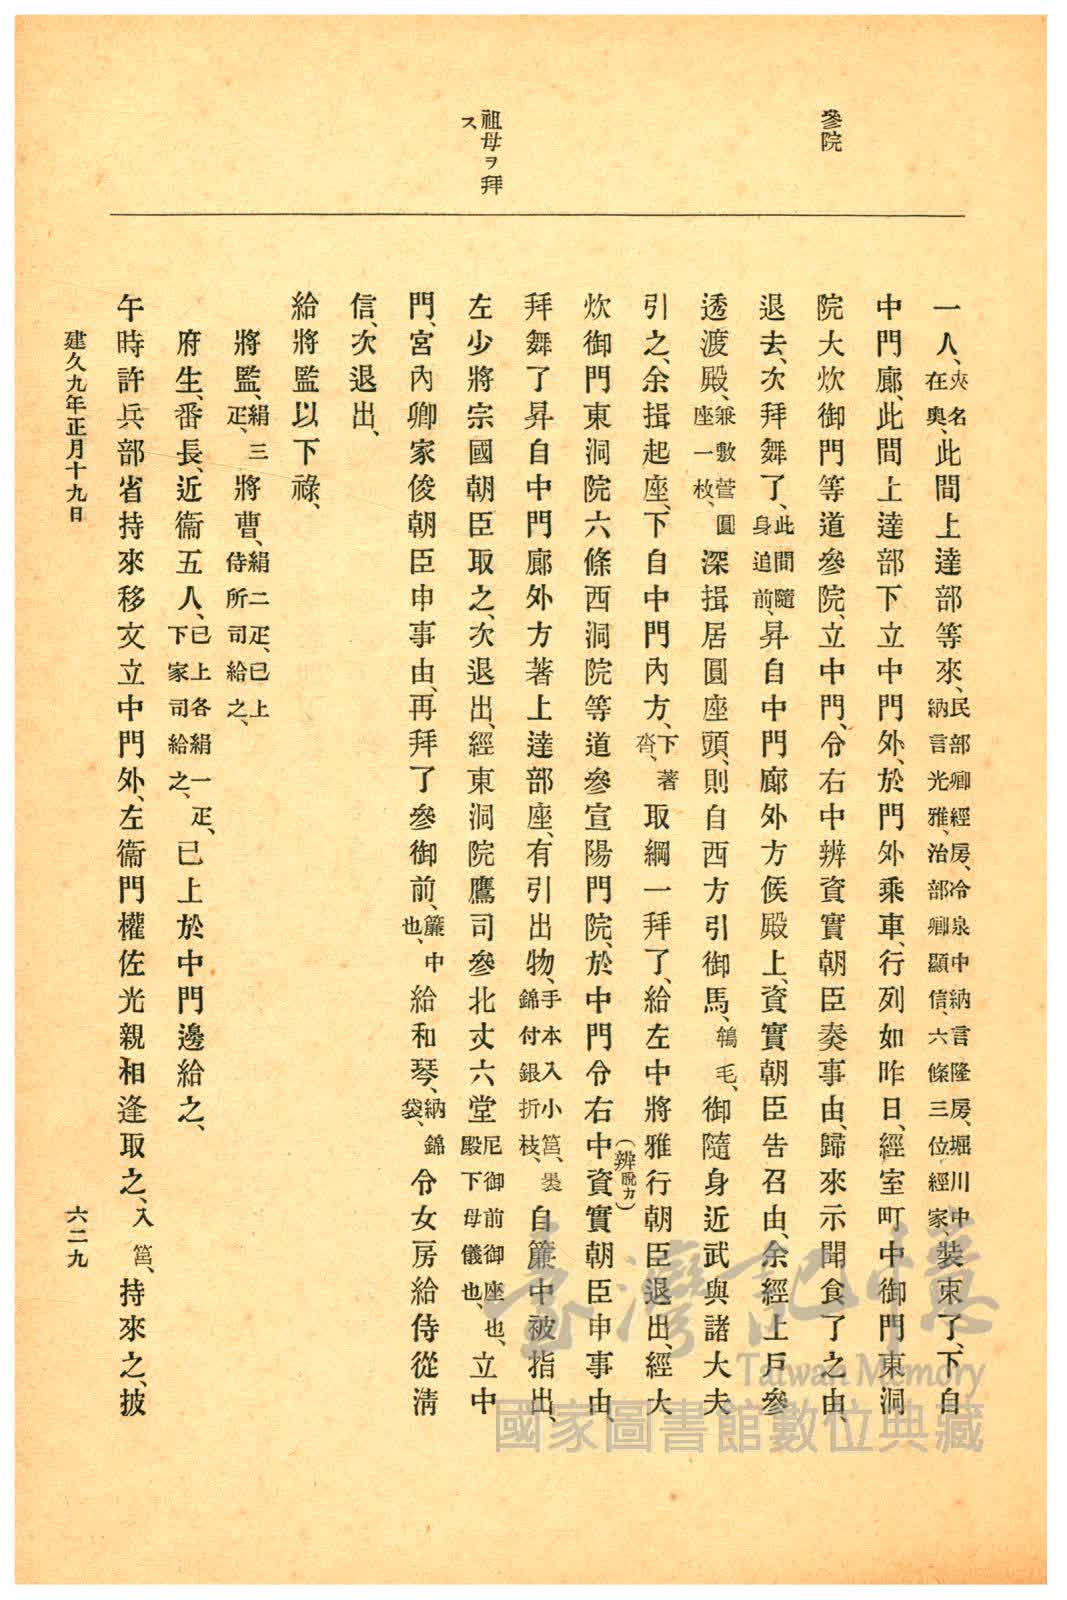 參院
祖母ヲ拜
ス
一人、夾名在奧、此間上達部等來、民部卿經房、冷泉中納言隆房、堀川中納言光雅、治部卿顯信、六條三位經家、裝束了、下自
中門廊、此間上達部下立中門外、於門外乘車、行列如昨日、經室町中御門東洞
院大炊御門等道參院、立中門、令右中辨資實朝臣奏事由、歸來示聞食了之由、
退去、次拜舞了、此間隨身追前、昇自中門廊外方候殿上、資實朝臣告召由、余經上戶參
透渡殿、兼敷菅圓座一枚、深揖居圓座頭、則自西方引御馬、鴾毛、御隨身近武與諸大夫
引之、余揖起座、下自中門內方、下著沓、取綱一拜了、給左中將雅行朝臣退出、經大
炊御門東洞院六條西洞院等道參宣陽門院、於中門令右中(辨脫カ)資實朝臣申事由、
拜舞了昇自中門廊外方著上達部座、有引出物、手本入小筥、裹錦付銀折枝、自簾中被指出、
左少將宗國朝臣取之、次退出、經東洞院鷹司參北丈六堂尼御前御座也、殿下母儀也、立中
門、宮內卿家俊朝臣申事由、再拜了參御前、簾中也、給和琴、納錦袋、令女房給侍從淸
信、次退出、
給將監以下祿、
將監、絹三疋、將曹、絹二疋、已上侍所司給之、
府生、番長、近衞五人、已上各絹一疋、下家司給之、已上於中門邊給之、
午時許兵部省持來移文立中門外、左衞門權佐光親相逢取之、入筥、持來之、披
建久九年正月十九日
六二九
臺灣記憶
Taiwan Memory
國家圖書館數位典藏